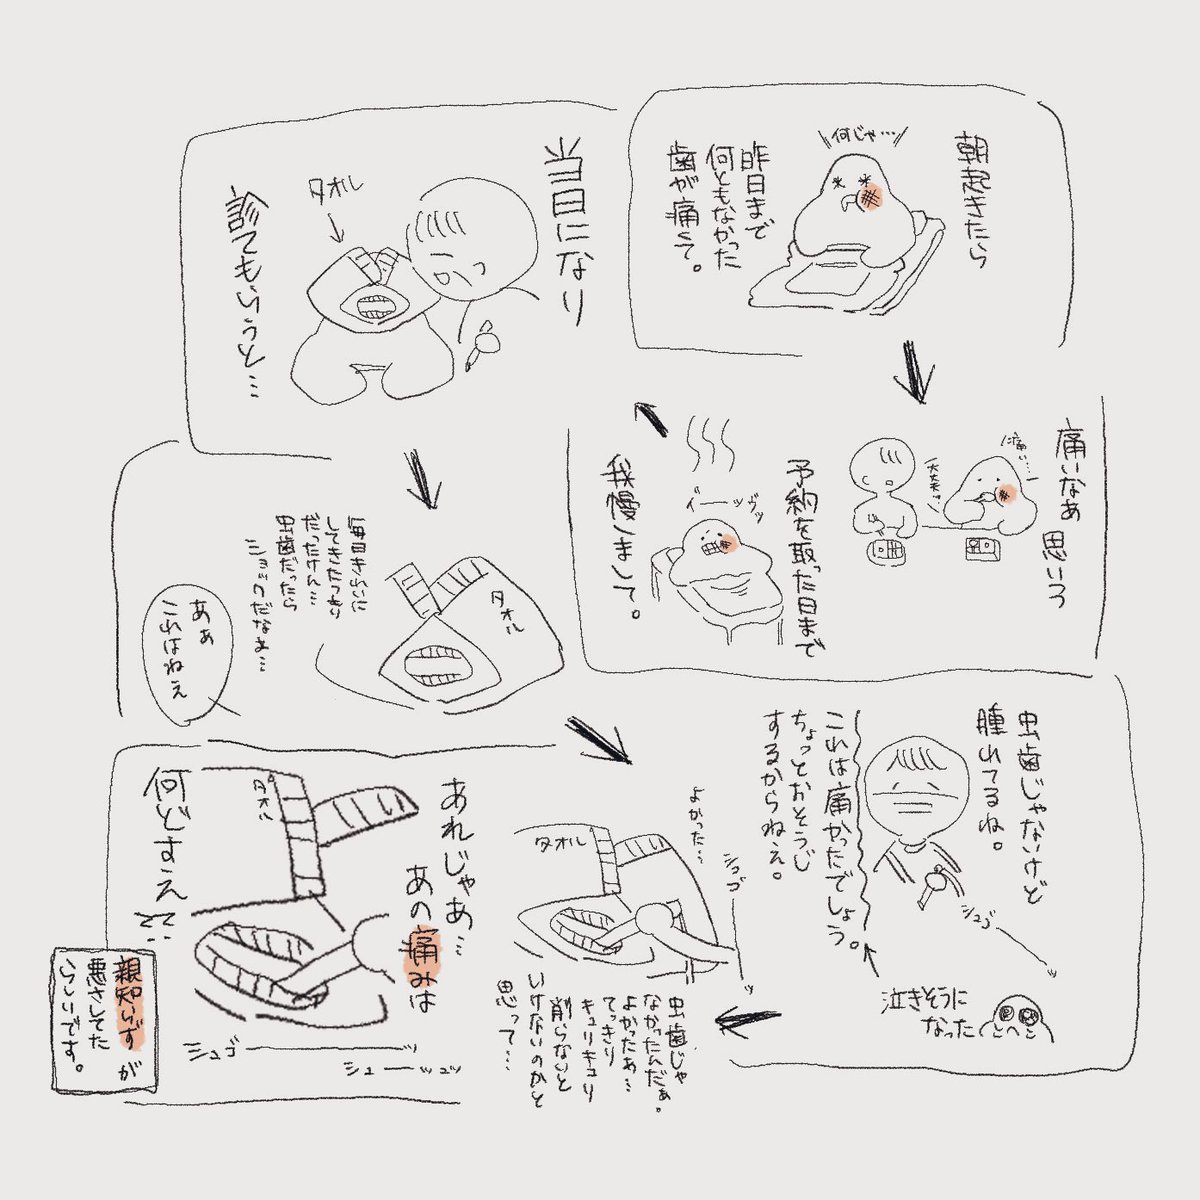 朝起きたら
何じゃ…
昨日まで
何ともなかった
歯が痛くて。
痛いなぁ
思いつつ
痛い…
大丈夫?
予約を取った日まで
我慢しまして。
当日になり
タオル
診てもらうと…
タオル
毎日きれいに
してきたつもり
だったけん…
虫歯だったら
ショックだなぁ…
あぁ
これはねぇ
虫歯じゃないけど
腫れてるね。
これは痛かったでしょう。
ちょっとおそうじ
するからねぇ。
シュゴーーッ
泣きそうに
なった
よかった…
シュゴーーッ
タオル
虫歯じゃ
なかったんだぁ。
よかったぁ…
てっきり
キュリキュリ
削らないと
いけないのかと
思って…
あれじゃあ…
あの痛みは
タオル
何どすえ
シュゴーーッ
シューーッュッ
親知らずが
悪さしてた
らしいです。